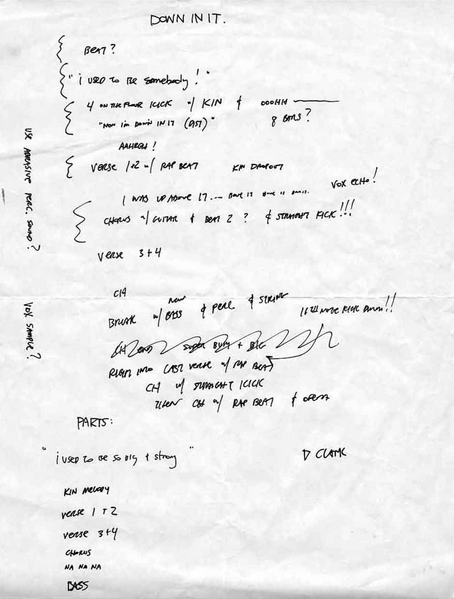 DOWN IN IT.
BEAT?
"i used to be somebody!"
4 ON THE FLOOR KICK w/ KIN & OOOHH
"NOW I'M DOWN IN IT (LAST)" 8 BARS?
AAHHHH!
VERSE 1+2 w/ RAP BEAT KIN DROPOUT
I WAS UP ABOVE IT... VOX ECHO!
CHORUS w/ GUITAR & BEAT 2 ? & STRAIGHT KICK!!!
VERSE 3+4
CH
NEW
BREAK w/ BASS & PERC & STRING 16TH NOTE KICK !!
CH SUPER BUSY + BIG
RIGHT INTO LAST VERSE w/ RAP BEAT
CH w/ STRAIGHT KICK
THEN CH w/ RAP BEAT & OPERA
PARTS:
"i used to be so big + strong" D CLARK
KIN MELODY
VERSE 1 + 2
VERSE 3+4
CHORUS
NA NA NA
BASS
USE ABRASIVE PERC. SOUND?
VOX SAMPLE?